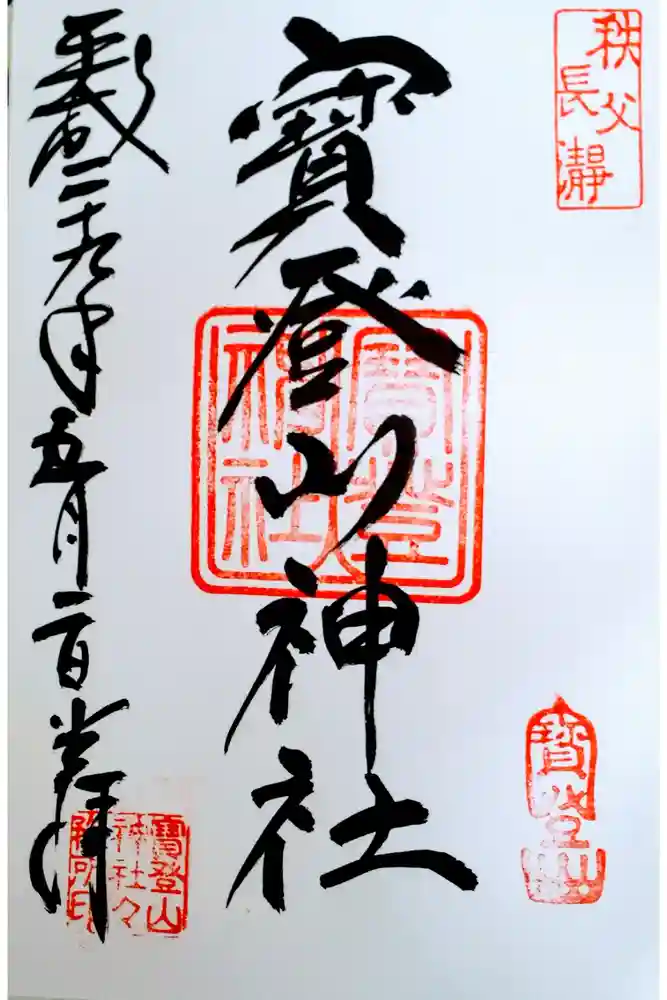 秩父
長瀞
寳登山神社
寳登山
神社
寳登山
平成二十九年五月二日
拝
寳登山
神社々
務所印